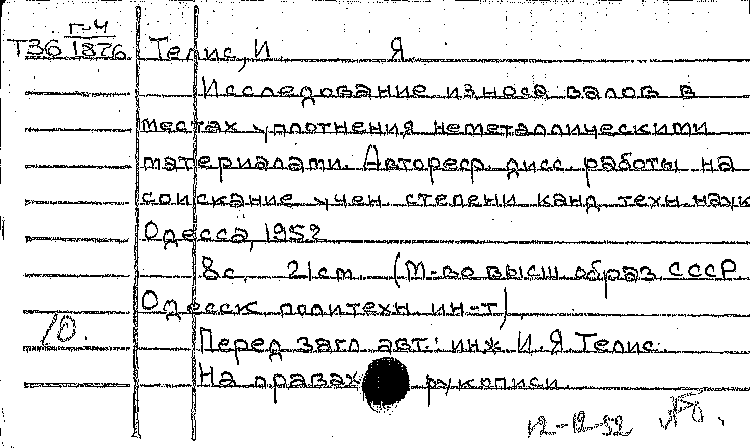 Г-4
Т36 1876 Телис, И Я
Исследование износа валов в
местах уплотнения неметаллическими
материалами. Автореф. дисс. работы на
соискание учен степени канд техн.наук
Одесса, 1952
8с. 21см. (М-во высш образ СССР
Одесск политехн ин-т)
10.
Перед загл авт.: инж И.Я Телис.
На правах рукописи.
12-12-52